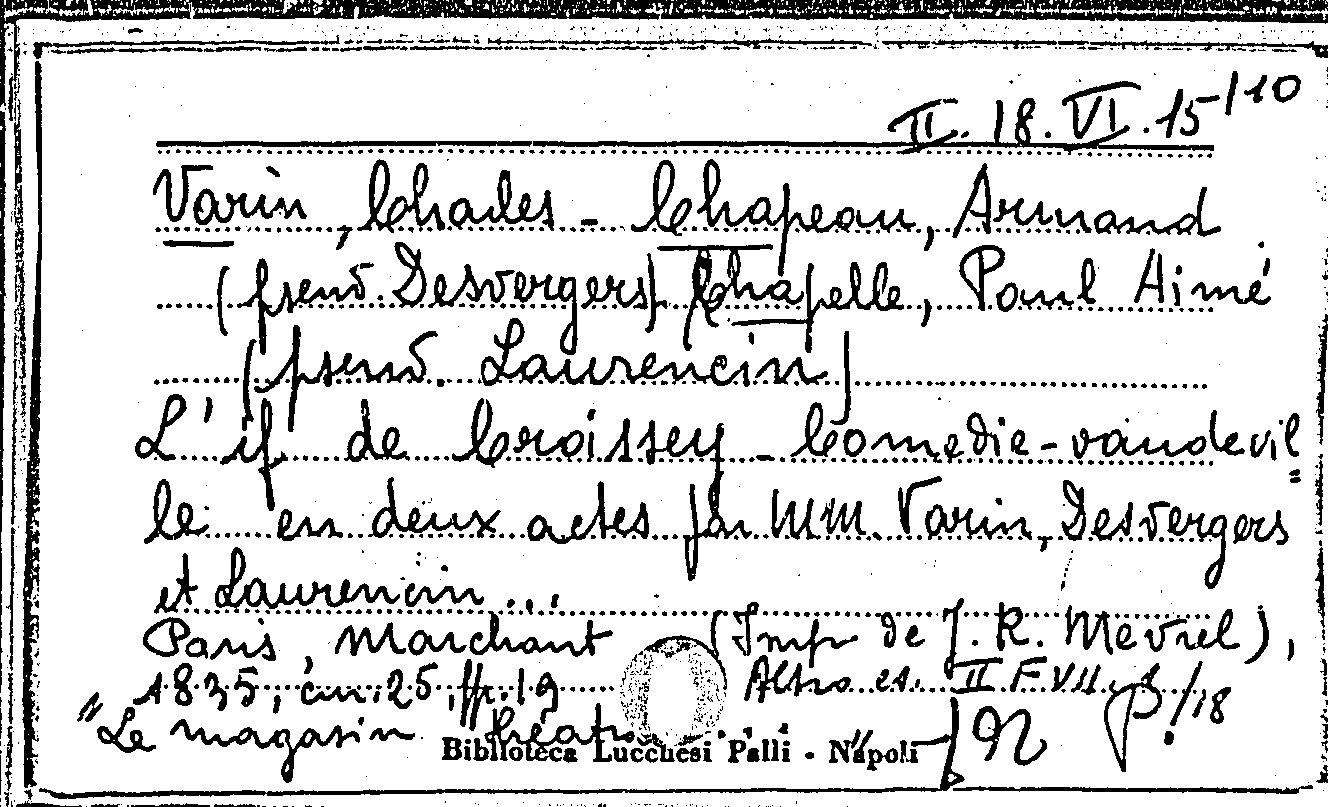 II. 18. VI. 15/10
Varin, Charles - Chapeau, Armand
(pseud. Desvergers) Chapelle, Paul Aimé
(pseud. Laurencin)
L'if de Croissey - Comedie-vaudevil
le en deux actes par MM. Varin, Desvergers
et Laurencin...
Paris, Marchant (Imp de J. R. Mevrel),
1835, cm. 25, pp. 19 Altro es. II F VII
"Le magasin
Biblioteca Lucchesi Palli - Napoli